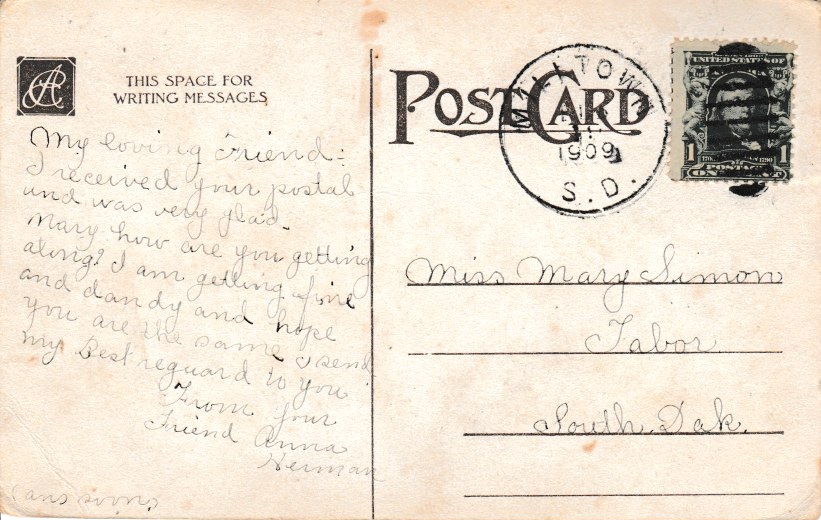 THIS SPACE FOR
WRITING MESSAGES
My loving Friend:
I received your postal
and was very glad.
Mary how are you getting
along? I am getting fine
and dandy and hope
you are the same I send
my Best reguard to you
From your
Friend Anna
Herman
(ans soon)
POST CARD
MILLTOWN
1909
S. D.
UNITED STATES OF
1 1
POSTAGE
ON
Miss Mary Simon
Tabor
South Dak.